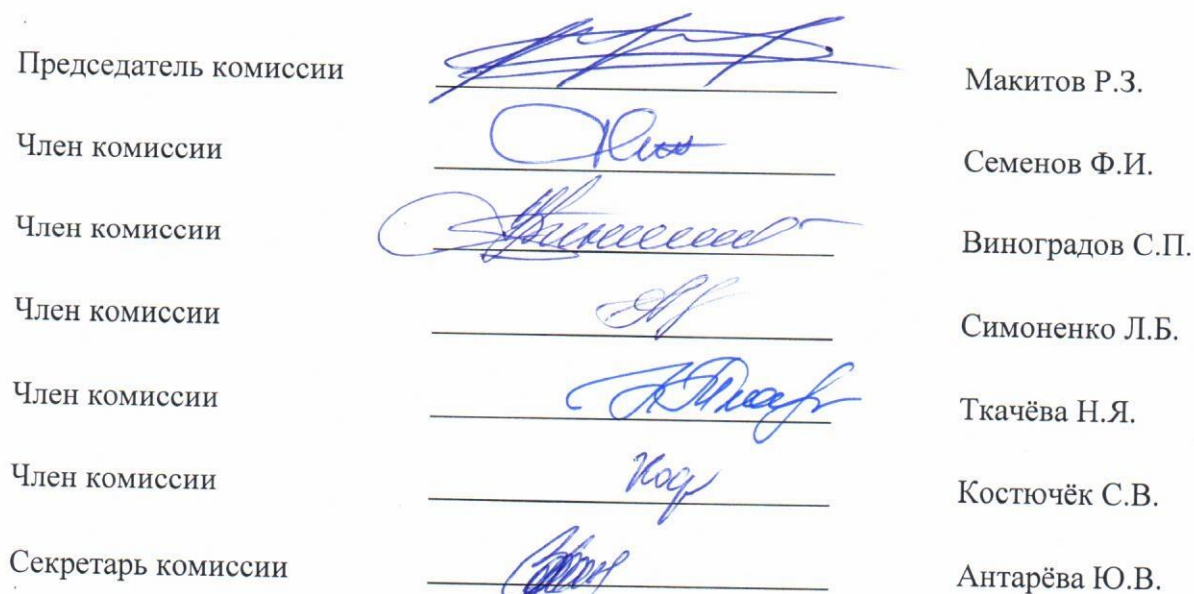 Председатель комиссии Макитов Р.З.
Член комиссии Семенов Ф.И.
Член комиссии Виноградов С.П.
Член комиссии Симоненко Л.Б.
Член комиссии Ткачёва Н.Я.
Член комиссии Костючёк С.В.
Секретарь комиссии Антарёва Ю.В.